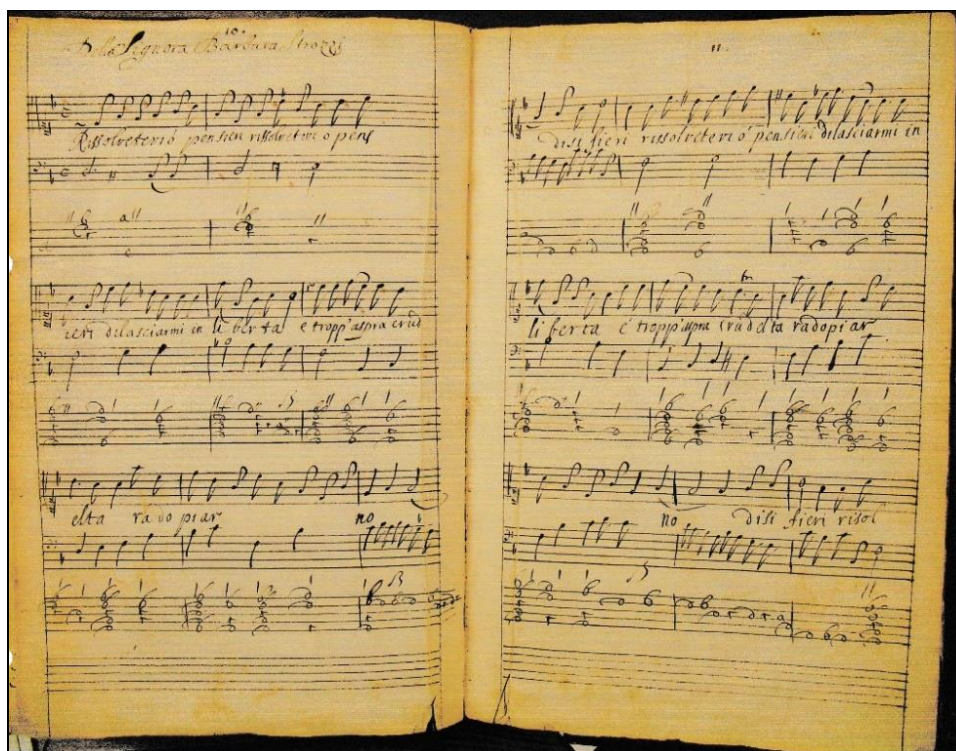 10.
Della Signora Barbara Strozzi
Rissolveterió pensieri rissolveteri o pens
ieri dilasciarmi in li ber ta e tropp'aspra crud
elta ra do piar no
11.
disi fieri rissolveteri ó pensieri dilasciarmi in
li ber ta é tropp'aspra crudelta radopiar
no disi fieri risol